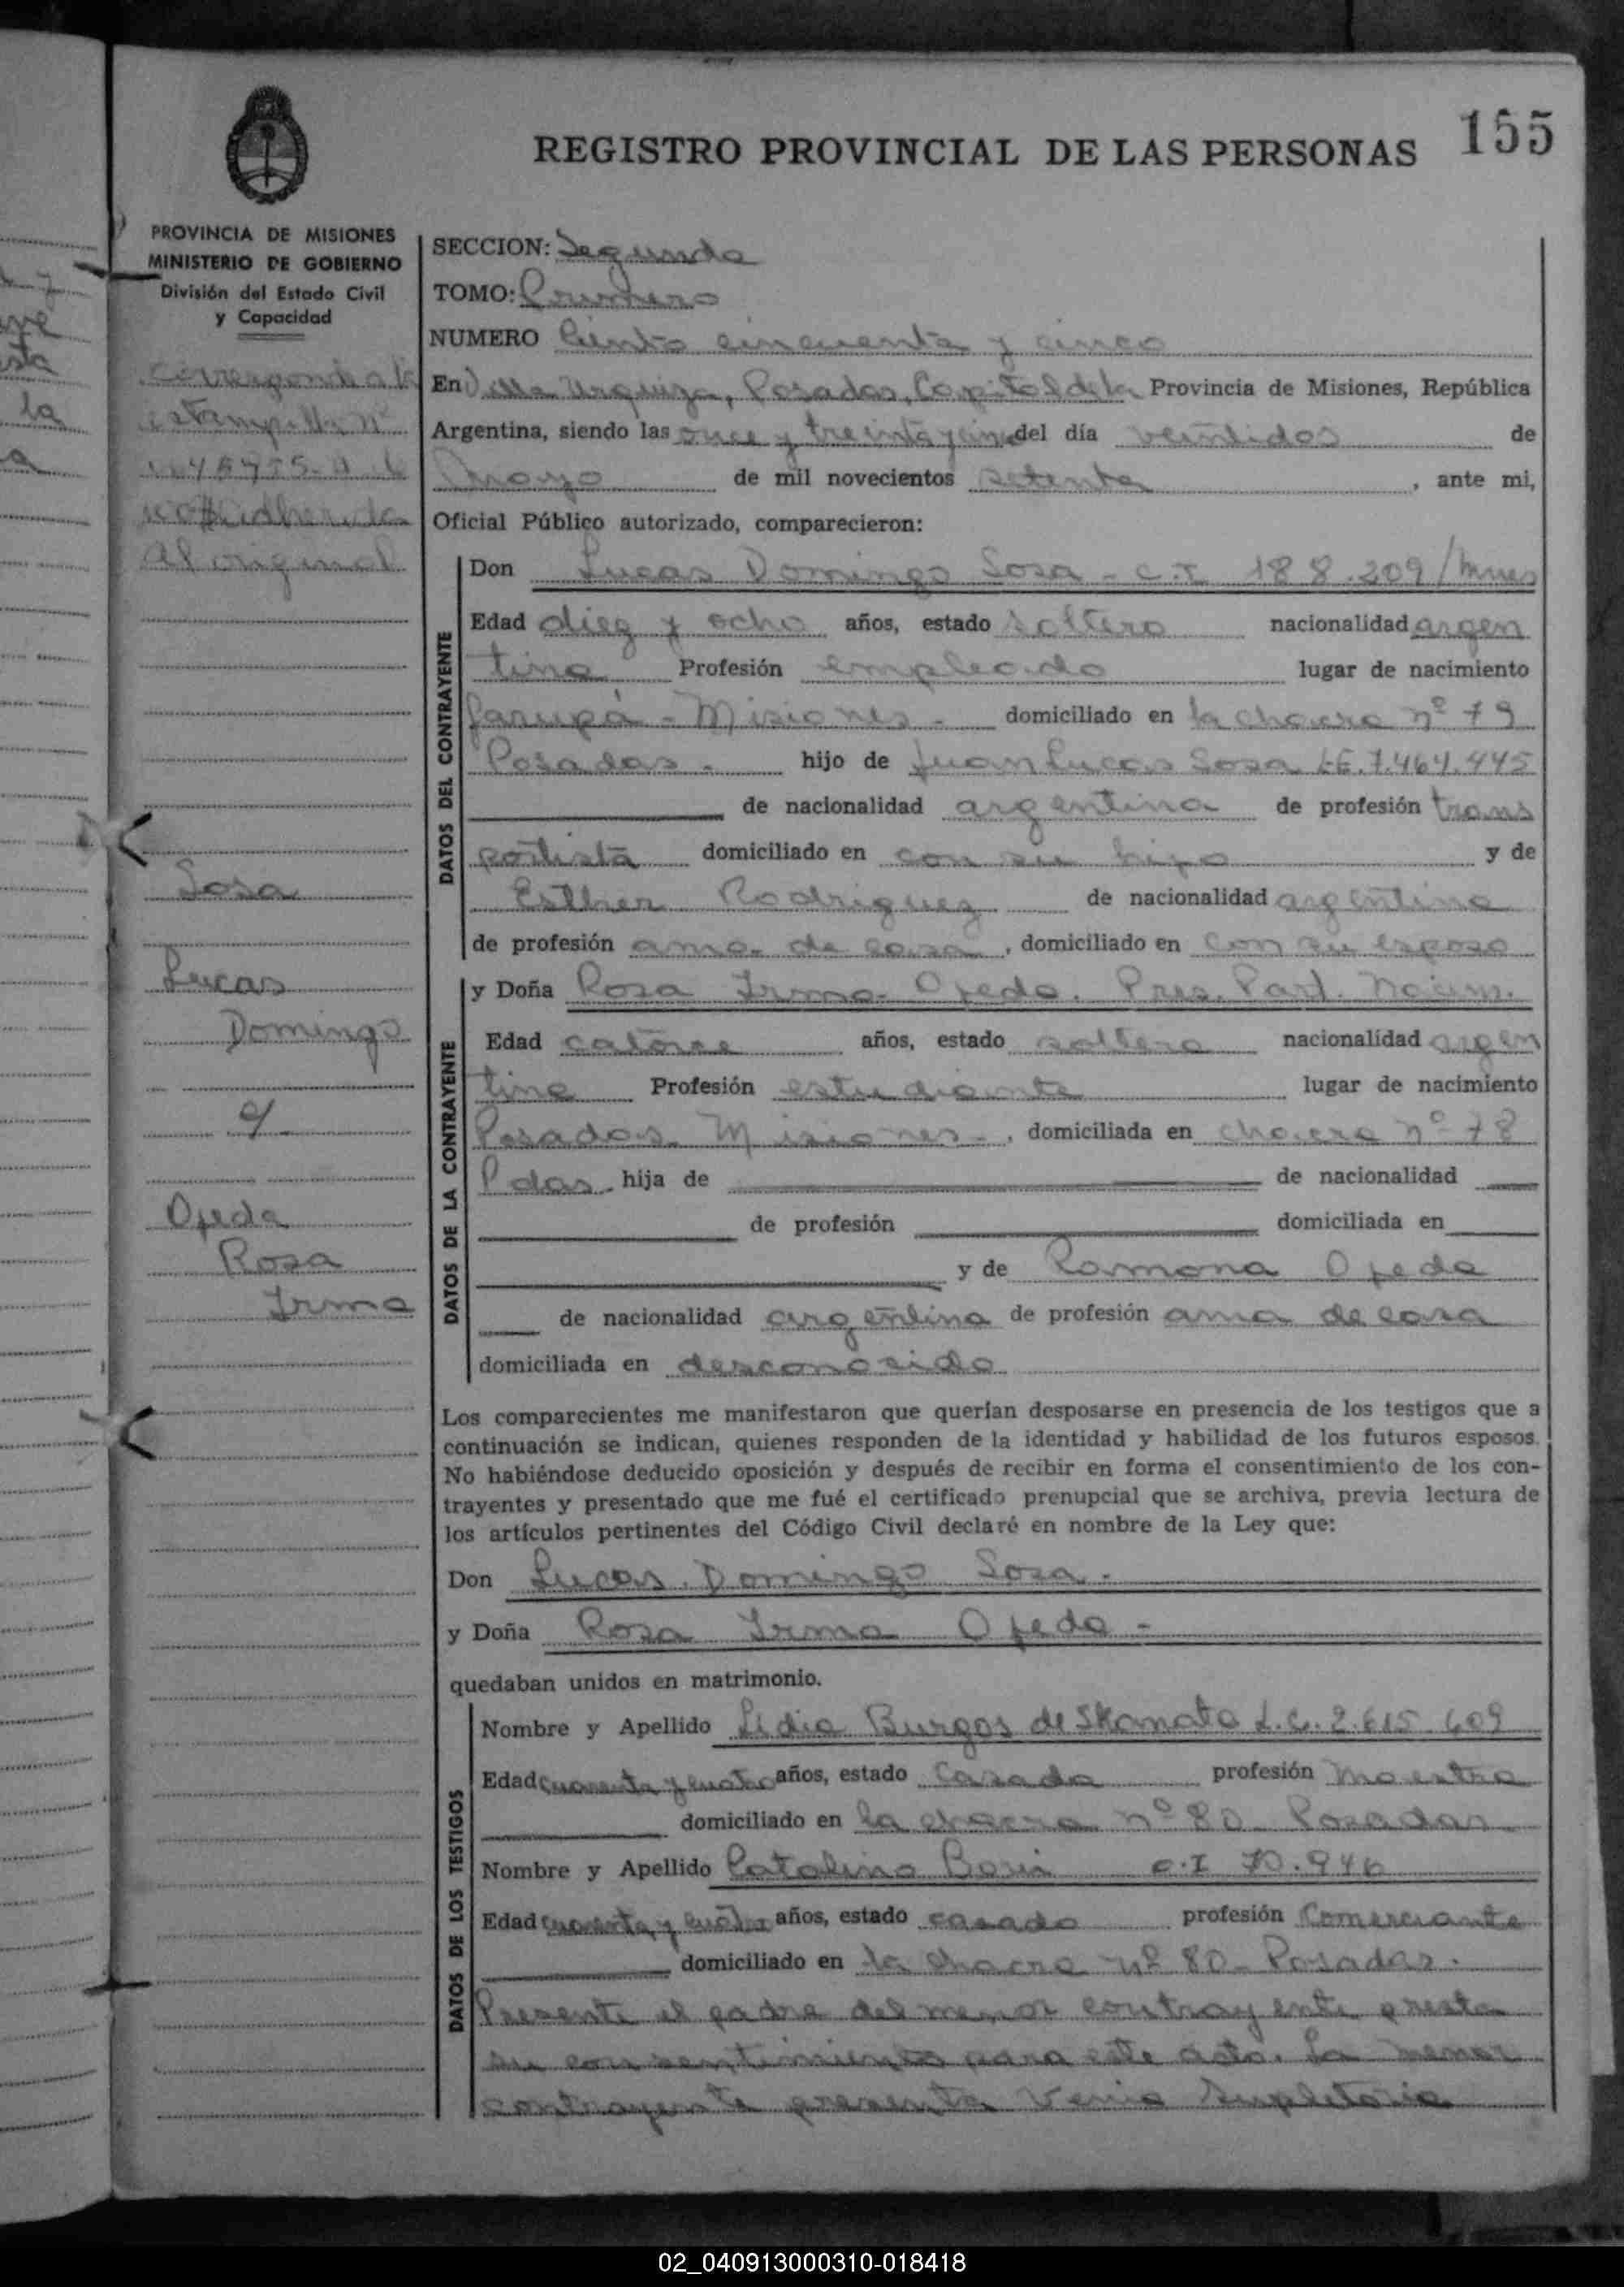 REGISTRO PROVINCIAL DE LAS PERSONAS 155
PROVINCIA DE MISIONES
MINISTERIO DE GOBIERNO
División del Estado Civil
y Capacidad
corresponde a la
estampilla nº
adherida
al original
Sosa
Lucas
Domingo
c/
Ojeda
Rosa
Irma
SECCION: Segunda
TOMO: Primero
NUMERO Ciento cincuenta y cinco
En Villa Urquiza, Posadas, Capital de la Provincia de Misiones, República
Argentina, siendo las once y treinta y cinco del día veintidos de
Mayo de mil novecientos setenta, ante mi,
Oficial Público autorizado, comparecieron:
DATOS DEL CONTRAYENTE
Don Lucas Domingo Sosa - C.I. 188.209/Mnes
Edad diez y ocho años, estado soltero nacionalidad argen
tina Profesión empleado lugar de nacimiento
Garupá - Misiones - domiciliado en la chacra nº 79
Posadas. hijo de Juan Lucas Sosa L.E. 7.464.445
de nacionalidad argentina de profesión trans
portista domiciliado en con su hijo y de
Esther Rodriguez de nacionalidad argentina
de profesión ama de casa, domiciliado en con su esposo
DATOS DE LA CONTRAYENTE
y Doña Rosa Irma Ojeda. Pres. Part. Nacim.
Edad catorce años, estado soltera nacionalidad argen
tina Profesión estudiante lugar de nacimiento
Posadas Misiones -, domiciliada en chacra nº 78
Pdas. hija de de nacionalidad
de profesión domiciliada en
y de Ramona Ojeda
de nacionalidad argentina de profesión ama de casa
domiciliada en desconocido
Los comparecientes me manifestaron que querían desposarse en presencia de los testigos que a
continuación se indican, quienes responden de la identidad y habilidad de los futuros esposos.
No habiéndose deducido oposición y después de recibir en forma el consentimiento de los con-
trayentes y presentado que me fué el certificado prenupcial que se archiva, previa lectura de
los artículos pertinentes del Código Civil declaré en nombre de la Ley que:
Don Lucas Domingo Sosa.
y Doña Rosa Irma Ojeda -
quedaban unidos en matrimonio.
DATOS DE LOS TESTIGOS
Nombre y Apellido Lidia Burgos de Skamata L.C. 2.615.609
Edad cuarenta y cuatro años, estado casada profesión Maestra
domiciliado en la chacra nº 80 Posadas
Nombre y Apellido Catalino C.I. 70.946
Edad cuarenta y cuatro años, estado casado profesión Comerciante
domiciliado en la chacra nº 80 - Posadas.
Presente el padre del menor contrayente presta
su consentimiento para este acto. La menor
contrayente presenta Venia Supletoria
02_040913000310-018418